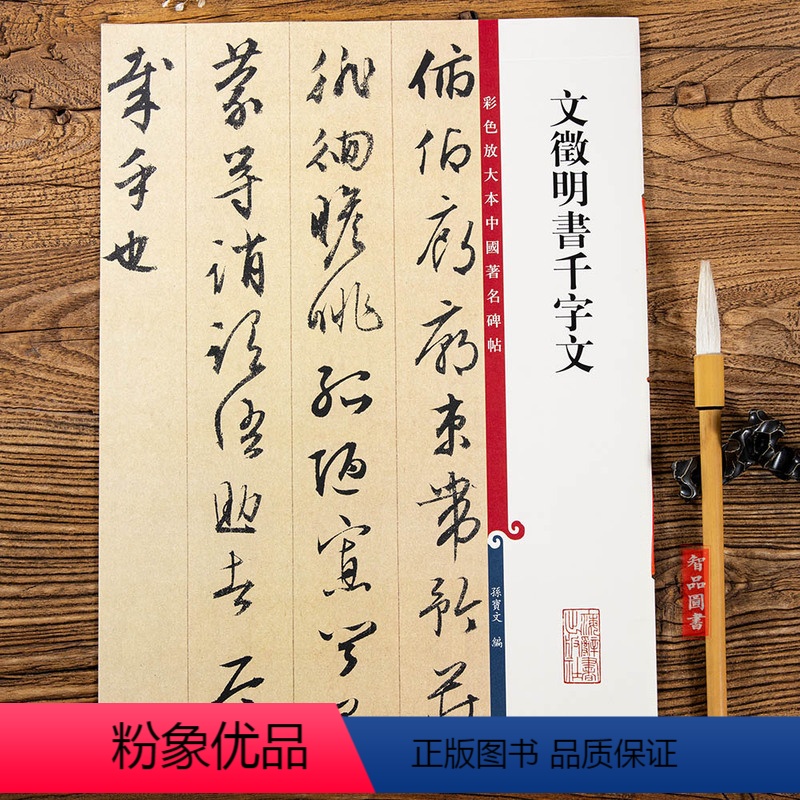 文徵明書千字文
彩色放大本中國著名碑帖
孫寶文 編
俯仰廊廟束帶矜莊
徘徊瞻眺孤陋寡聞
蒙等誚謂語助者焉
哉乎也
智品圖書
粉象优品
正版图书 品质保证